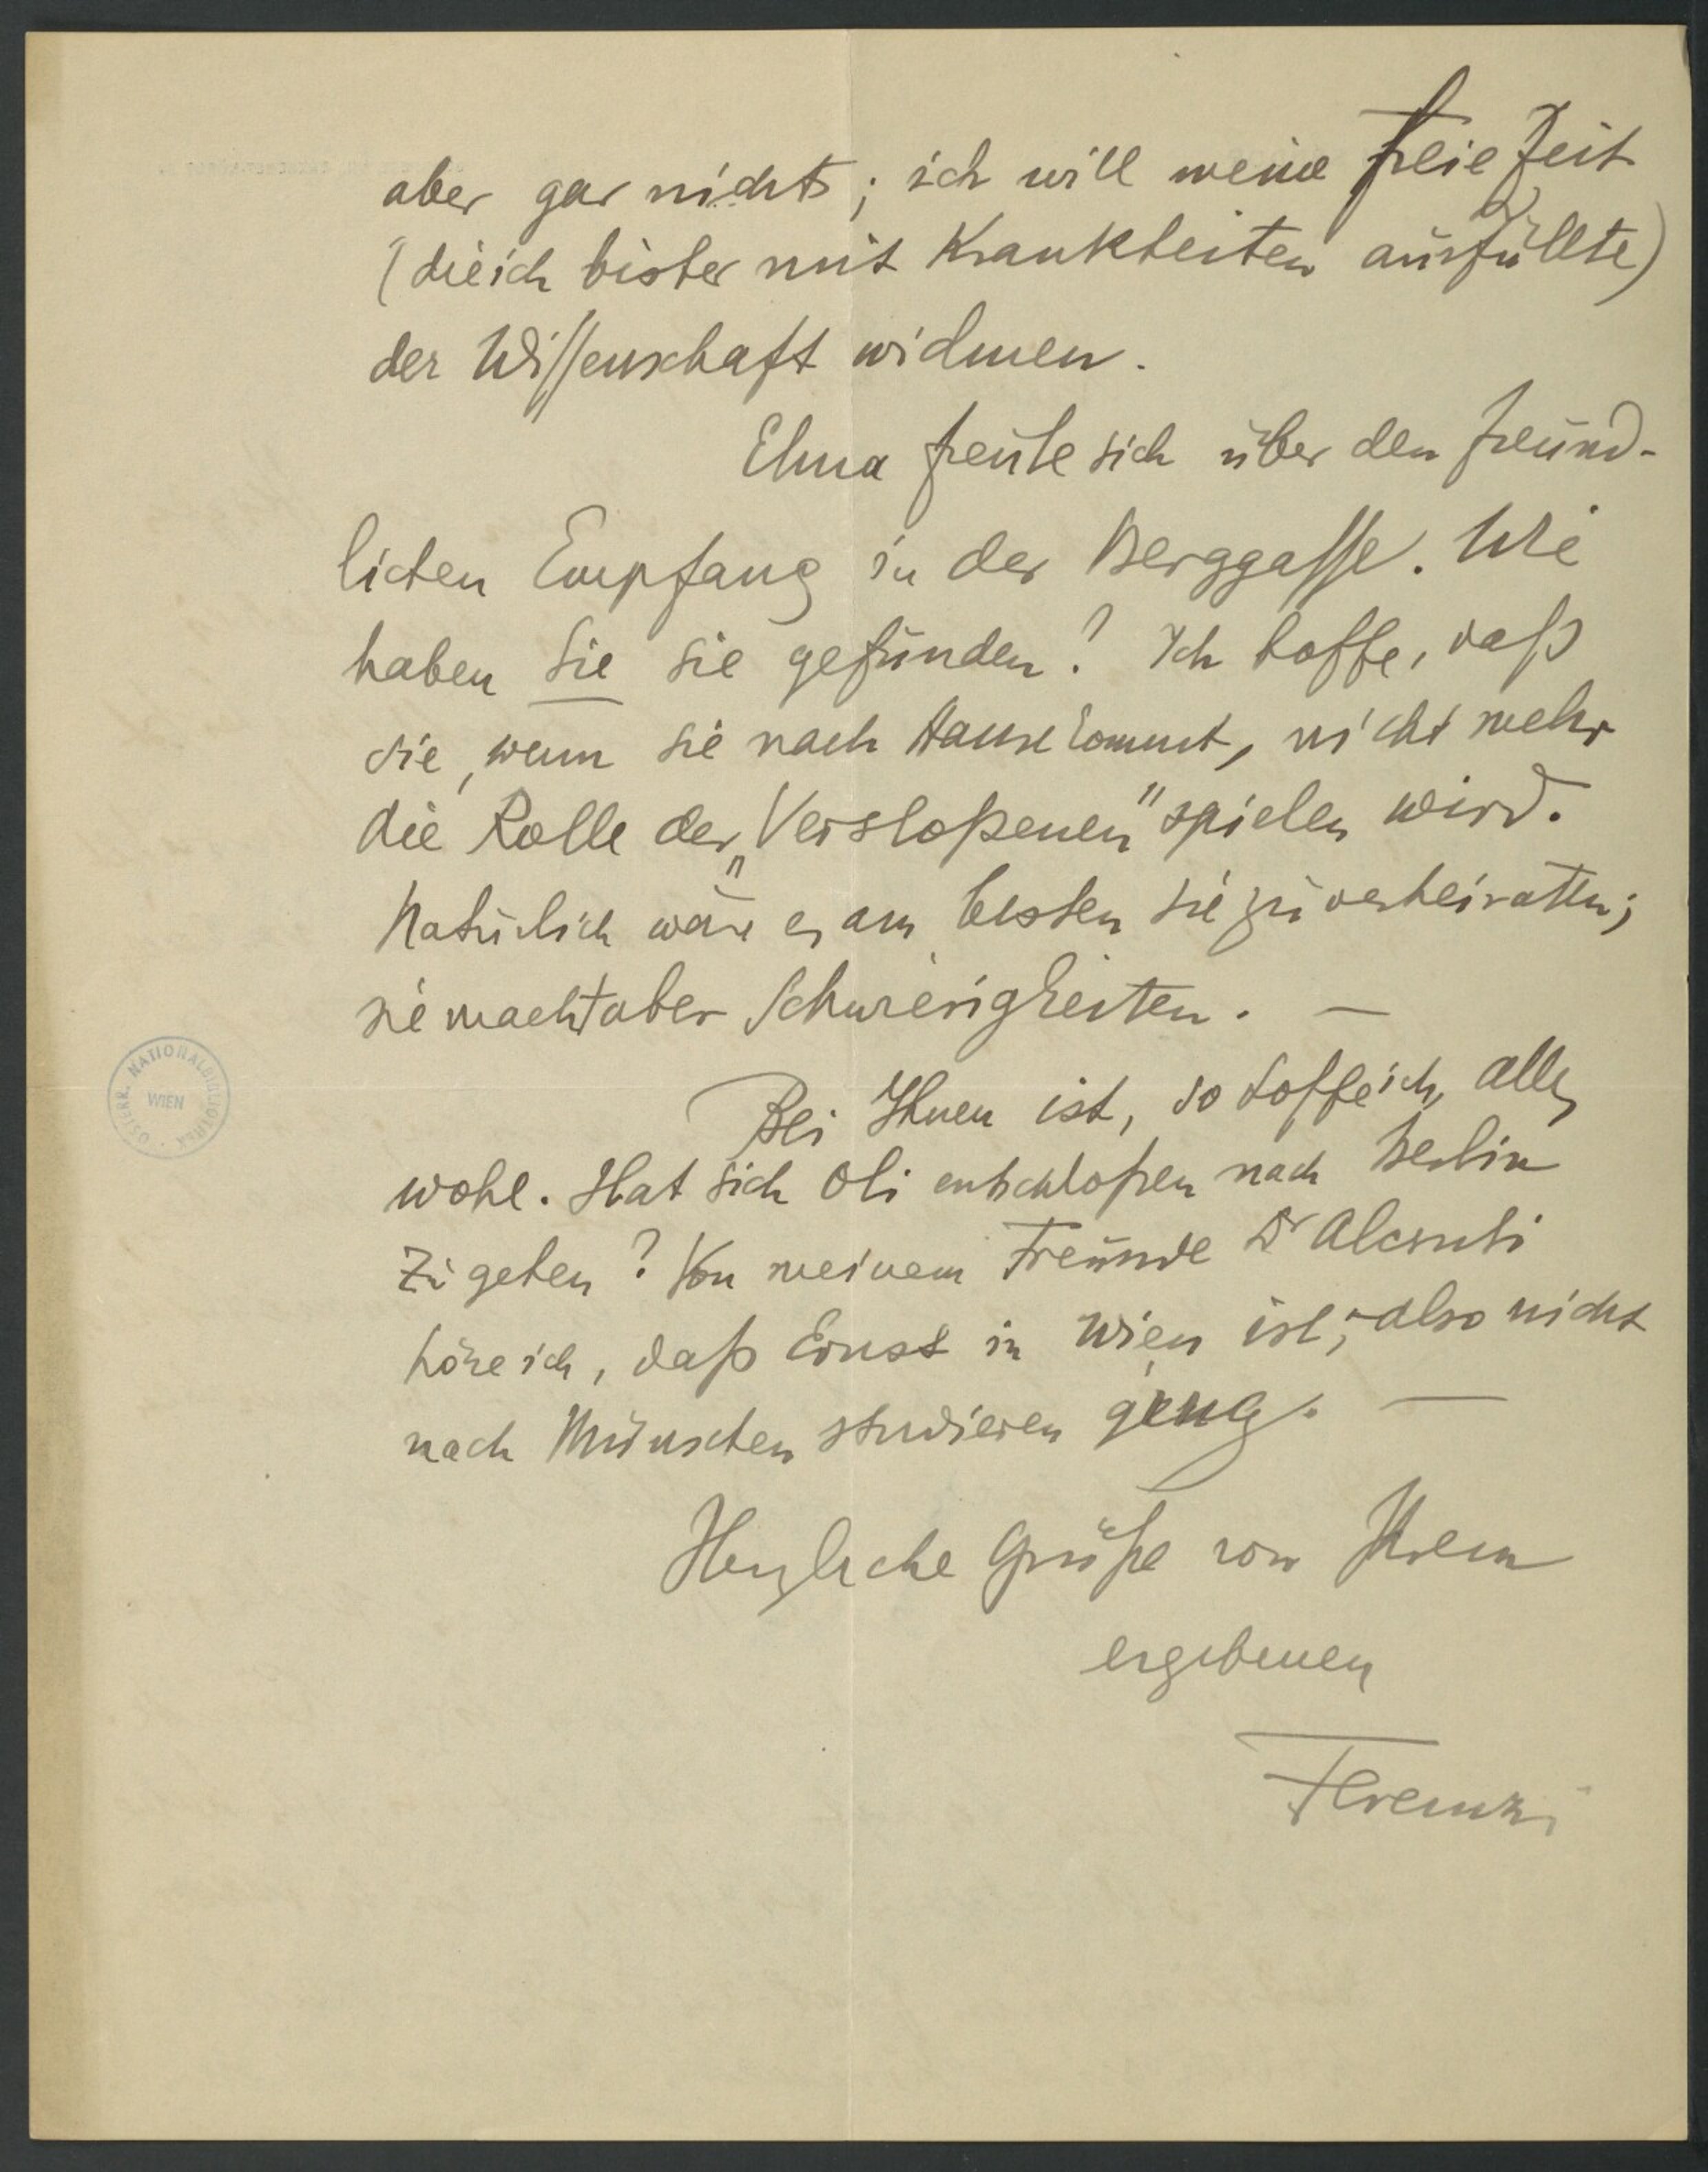 aber gar nichts; ich will meine freie Zeit
(die ich bisher mit Krankheiten ausfüllte)
der Wissenschaft widmen.
Elma freute sich über den freund-
lichen Empfang in der Berggasse. Wie
haben Sie sie gefunden? Ich hoffe, daß
sie, wenn sie nach Hause kommt, nicht mehr
die Rolle der „Verstoßenen" spielen wird.
Natürlich wäre es am besten sie zu verheiraten;
sie macht aber Schwierigkeiten. —
Bei Ihnen ist, so hoffe ich, alles
wohl. Hat sich Oli entschloßen nach Berlin
zu gehen? Von meinem Freunde Dr
höre ich, daß Ernst in Wien ist; also nicht
nach München studieren ging. —
Herzliche Grüße von Ihrem
ergebenen
Ferenczi
ÖSTERR. NATIONALBIBLIOTHEK
WIEN